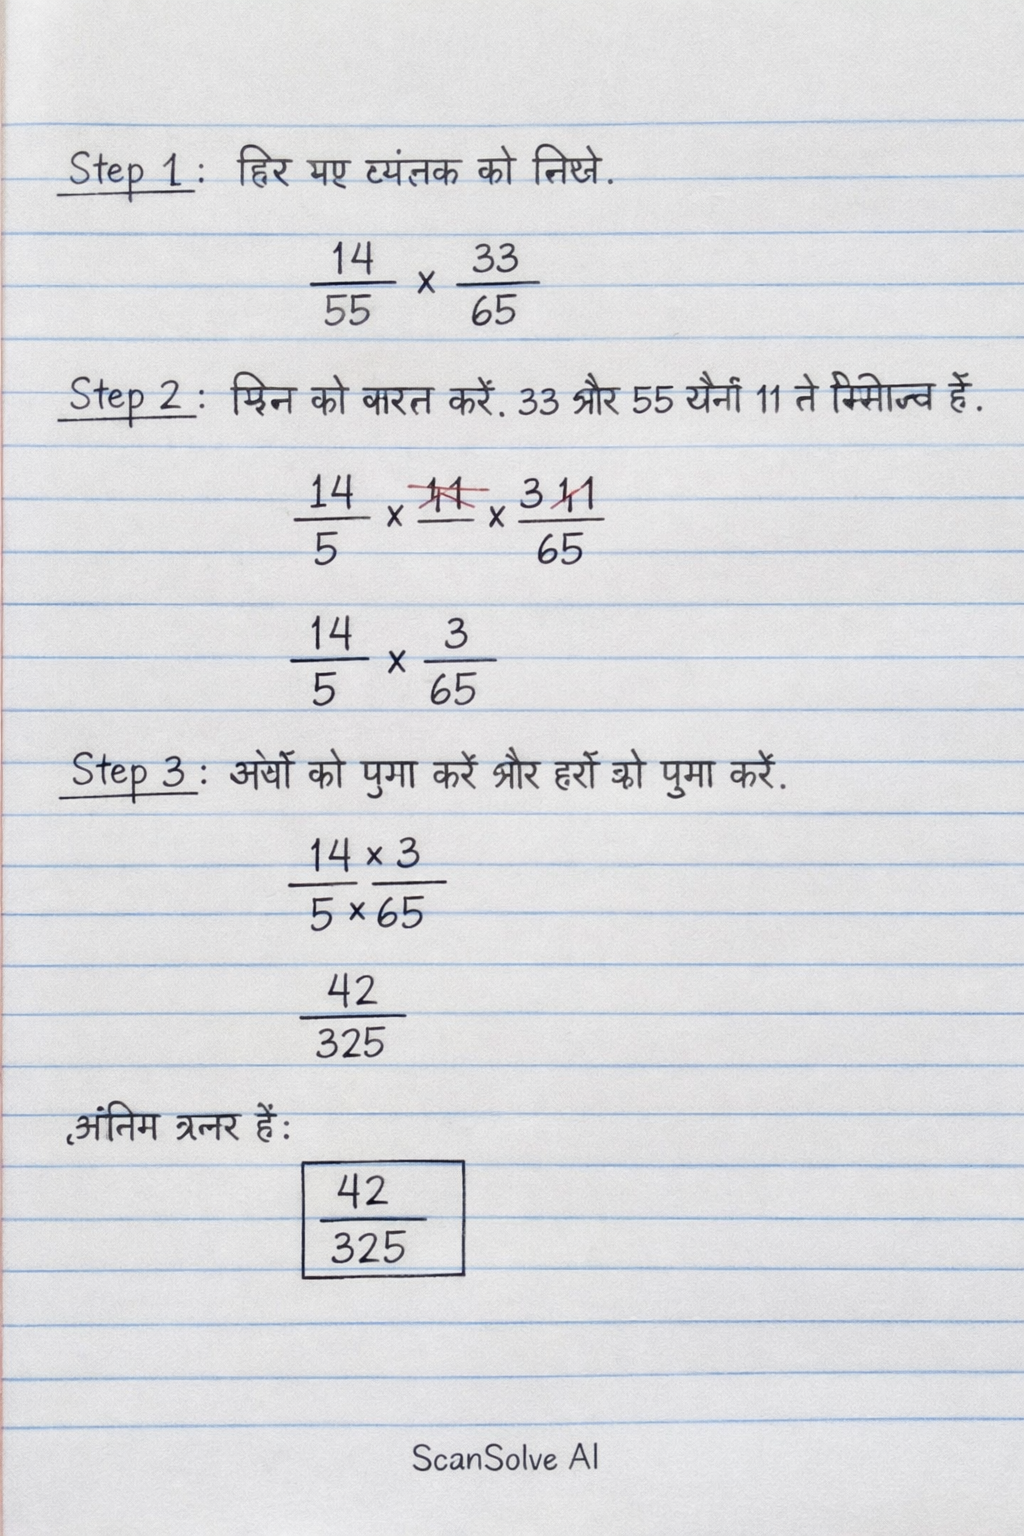 Step 1: हिर मए व्यंतक को निखे.
14/55 × 33/65
Step 2: को वारत करें. 33 और 55 11 ते हैं.
14/5 × 11 × 3 11/65
14/5 × 3/65
Step 3: को पुमा करें और हरों को पुमा करें.
14 × 3
5 × 65
42/325
अंतिम त्रलर हैं:
42/325
ScanSolve AI